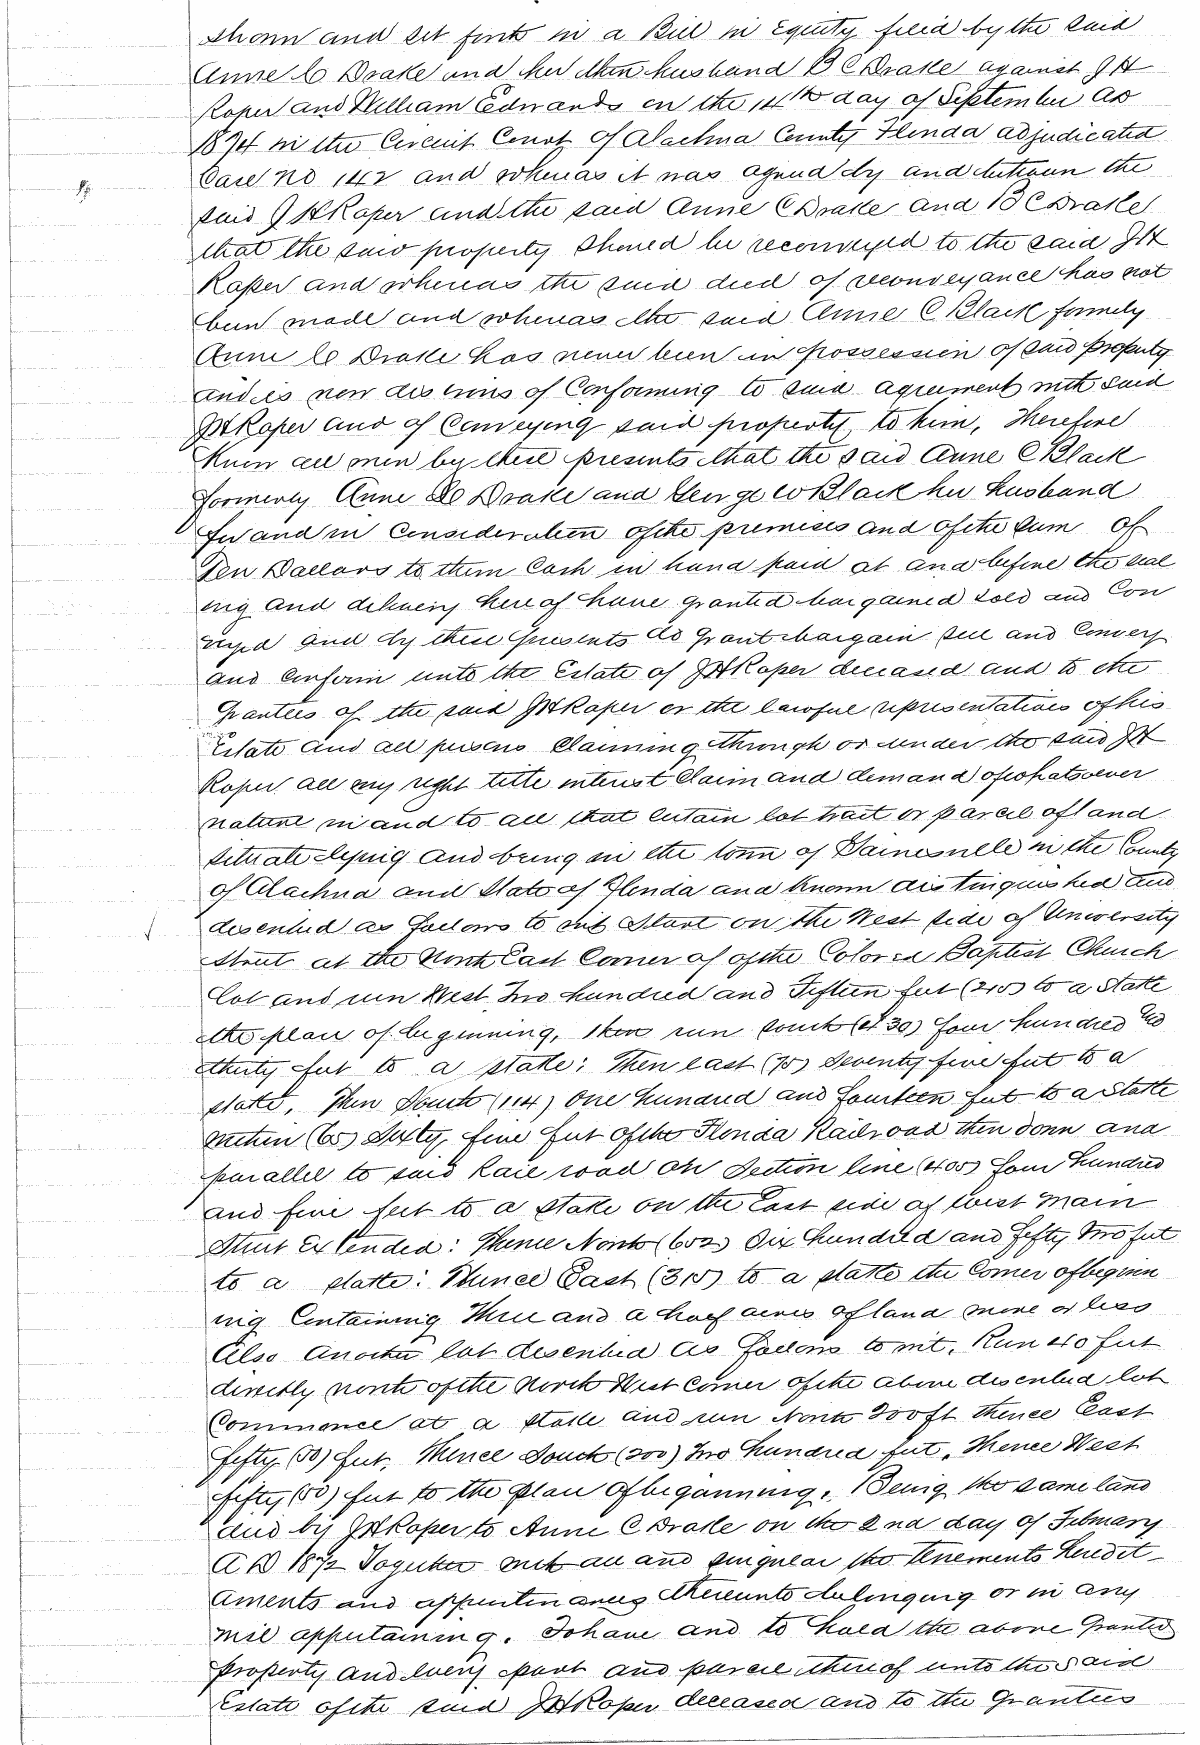 shown and set forth in a Bill in Equity filed by the said
Anne C Drake and her then husband B C Drake against J H
Roper and William Edwards on the 14th day of September AD
1874 in the Circuit Court of Alachua County Florida adjudicated
Case no 142 and whereas it was agreed by and between the
said J H Roper and the said Anne C Drake and B C Drake
that the said property should be reconveyed to the said J H
Roper and whereas the said deed of reconveyance has not
been made and whereas the said Anne C Black formerly
Anne C Drake has never been in possession of said property
and is now desirous of Conforming to said agreement with said
J H Roper and of Conveying said property to him, Therefore
Know all men by these presents that the said Anne C Black
formerly Anne C Drake and George W Black her husband
for and in Consideration of the premises and of the Sum of
Ten Dollars to them Cash in hand paid at and before the seal
ing and delivery here of have granted bargained sold and Con
veyed and by these presents do grant bargain sell and Convey
and Confirm unto the Estate of J H Roper deceased and to the
Grantees of the said J H Roper or the lawful representatives of his
Estate and all persons Claiming through or under the said J H
Roper all my right title interest Claim and demand of whatsoever
nature in and to all that certain lot tract or parcel of land
situate lying and being in the town of Gainesville in the County
of Alachua and State of Florida and known distinguished and
described as follows to wit Start on the West side of University
Street at the North East Corner of of the Colored Baptist Church
lot and run West Two hundred and Fifteen feet (215) to a stake
the place of beginning, then run South (430) four hundred and
thirty feet to a stake; Then east (75) Seventy five feet to a
stake, Then South (114) One hundred and fourteen feet to a stake
within (65) Sixty five feet of the Florida Railroad then down and
parallel to said Rail road on Section line (405) four hundred
and five feet to a stake on the East side of West Main
Street Extended: Thence North (652) Six hundred and fifty two feet
to a stake: Thence East (315) to a stake the Corner of beginn
ing Containing Three and a half acres of land more or less
Also another lot described as follows to wit, Run 40 feet
directly north of the North West Corner of the above described lot
Commence at a stake and run North 200 ft thence East
fifty (50) feet, Thence South (200) Two hundred feet, Thence West
fifty (50) feet to the place of beginning, Being the same land
deed by J H Roper to Anne C Drake on the 2nd day of February
A D 1872 Together with all and singular the Tenements heredit-
aments and appurtenances thereunto belonging or in any
wise appertaining. To have and to hold the above Granted
property and every part and parcel thereof unto the said
Estate of the said J H Roper deceased and to the Grantees